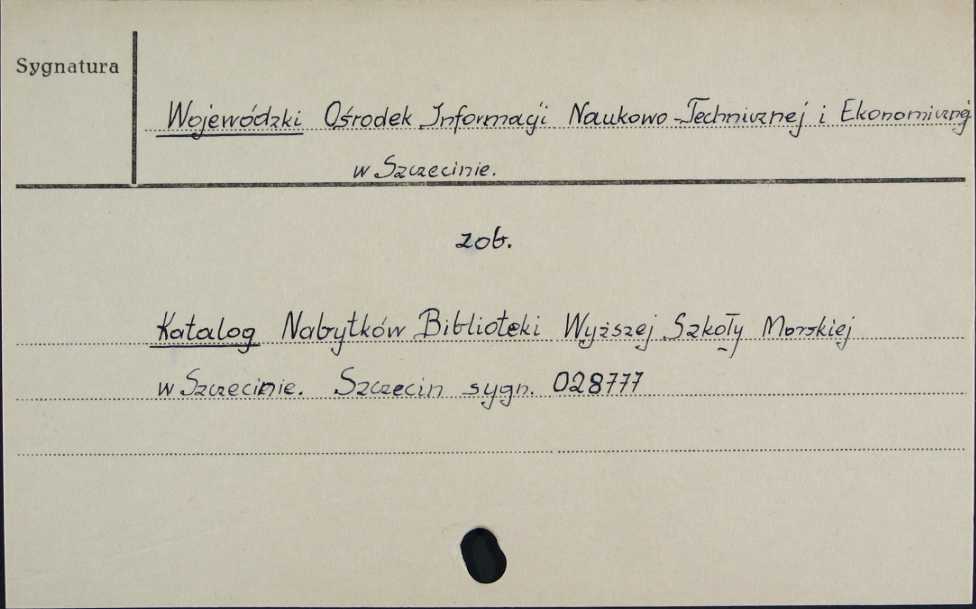 Sygnatura
Wojewódzki Ośrodek Informacji Naukowo-Technicznej i Ekonomicznej
w Szczecinie.
zob.
Katalog Nabytków Biblioteki Wyższej Szkoły Morskiej
w Szczecinie. Szczecin sygn. 028777